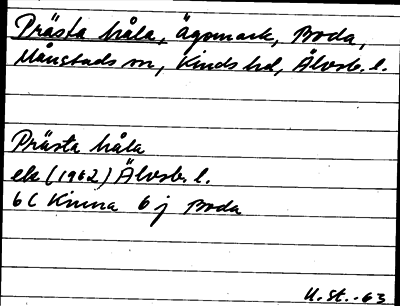 Prästa håla, Ägomark, Boda,
Månstads sn, Kinds hd, Älvsb. l.
Prästa håla
ek (1962) Älvsb. l.
6 C Kinna 6 j Boda
U. St. -63